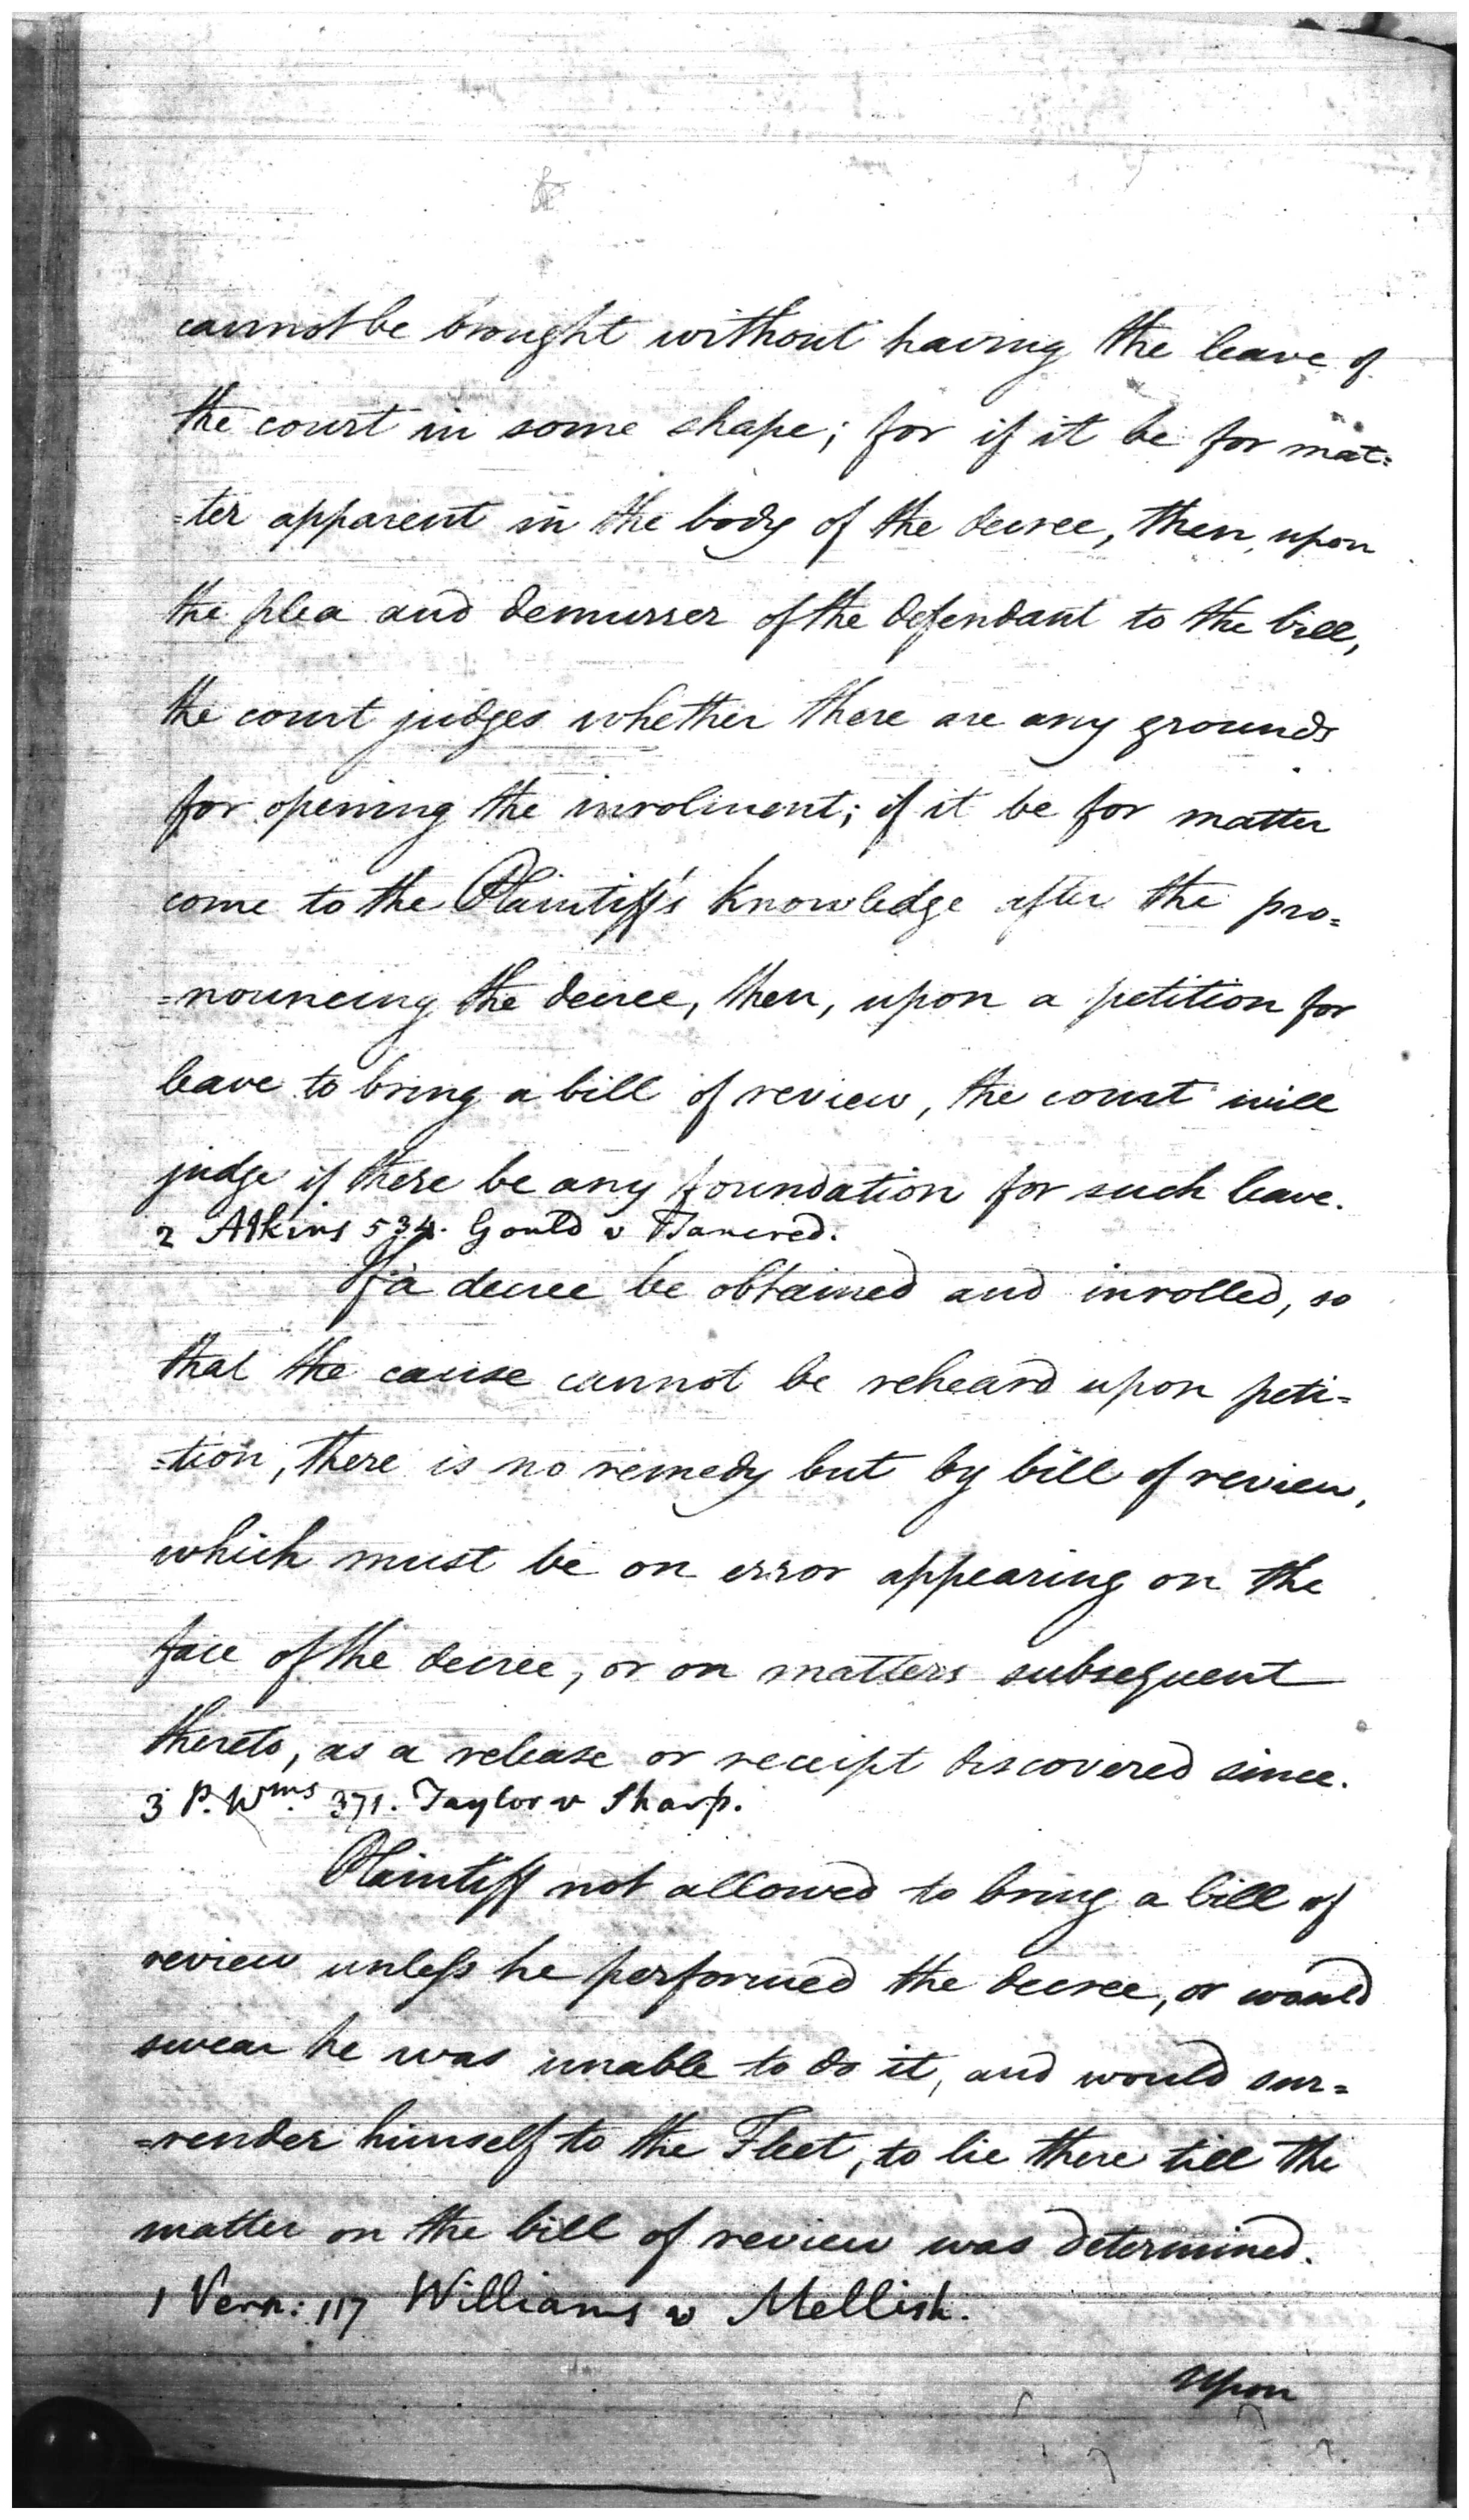 cannot be brought without having the leave of
the court in some shape; for if it be for mat=
=ter apparent in the body of the decree, then, upon
the plea and demurrer of the defendant to the bill,
the court judges whether there are any grounds
for opening the inrolment; if it be for matter
come to the Plaintiff's knowledge after the pro=
=nouncing the decree, then, upon a petition for
leave to bring a bill of review, the court will
judge if there be any foundation for such leave.
2 Atkins 534. Gould v Tancred.
If a decree be obtained and inrolled, so
that the cause cannot be reheard upon peti=
=tion, there is no remedy but by bill of review,
which must be on error appearing on the
face of the decree, or on matters subsequent
thereto, as a release or receipt discovered since.
3 P. Wms. 371. Taylor v Sharp.
Plaintiff not allowed to bring a bill of
review unless he performed the decree, or would
swear he was unable to do it, and would sur=
=render himself to the Fleet, to lie there till the
matter on the bill of review was determined.
1 Vern: 117 Williams v Mellish.
Upon